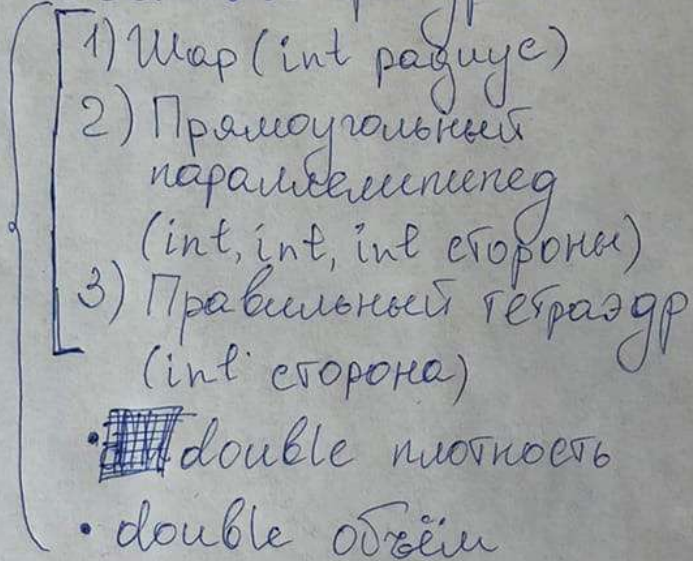 1) Шар (int радиус)
2) Прямоугольный
параллелепипед
(int, int, int стороны)
3) Правильный тетраэдр
(int сторона)
• double плотность
• double объём